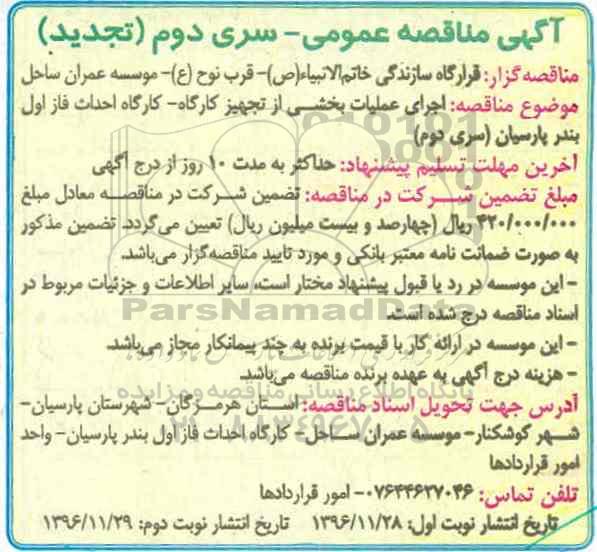 آگهی مناقصه عمومی- سری دوم (تجدید)
مناقصه‌گزار: قرارگاه سازندگی خاتم‌الانبیاء(ص)- قرب نوح (ع)- موسسه عمران ساحل
موضوع مناقصه: اجرای عملیات بخشی از تجهیز کارگاه- کارگاه احداث فاز اول
بندر پارسیان (سری دوم)
آخرین مهلت تسلیم پیشنهاد: حداکثر به مدت ۱۰ روز از درج آگهی
مبلغ تضمین شرکت در مناقصه: تضمین شرکت در مناقصه معادل مبلغ
۴۲۰/۰۰۰/۰۰۰ ریال (چهارصد و بیست میلیون ریال) تعیین می‌گردد. تضمین مذکور
به صورت ضمانت نامه معتبر بانکی و مورد تایید مناقصه‌گزار می‌باشد.
- این موسسه در رد یا قبول پیشنهاد مختار است، سایر اطلاعات و جزئیات مربوط در
ParsNamadData
اسناد مناقصه درج شده است.
- این موسسه در ارائه کار با قیمت برنده به چند پیمانکار مجاز می‌باشد.
- هزینه درج آگهی به عهده برنده مناقصه می‌باشد.
پایگاه اطلاع رسانی مناقصه و مزایده
آدرس جهت تحویل اسناد مناقصه: استان هرمزگان- شهرستان پارسیان-
شهر کوشکنار- موسسه عمران ساحل- کارگاه احداث فاز اول بندر پارسیان- واحد
امور قراردادها
تلفن تماس: ۰۷۶۴۴۶۲۷۰۴۶- امور قراردادها
تاریخ انتشار نوبت اول: ۱۳۹۶/۱۱/۲۸ تاریخ انتشار نوبت دوم: ۱۳۹۶/۱۱/۲۹